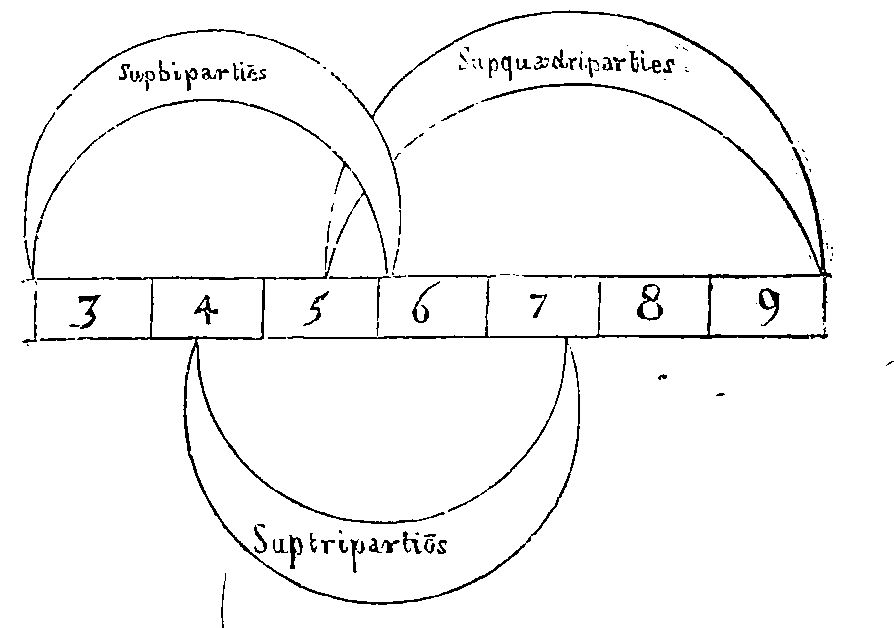 Supbipartiēs
Supquadriparties
3 4 5 6 7 8 9
Suptripartiōs